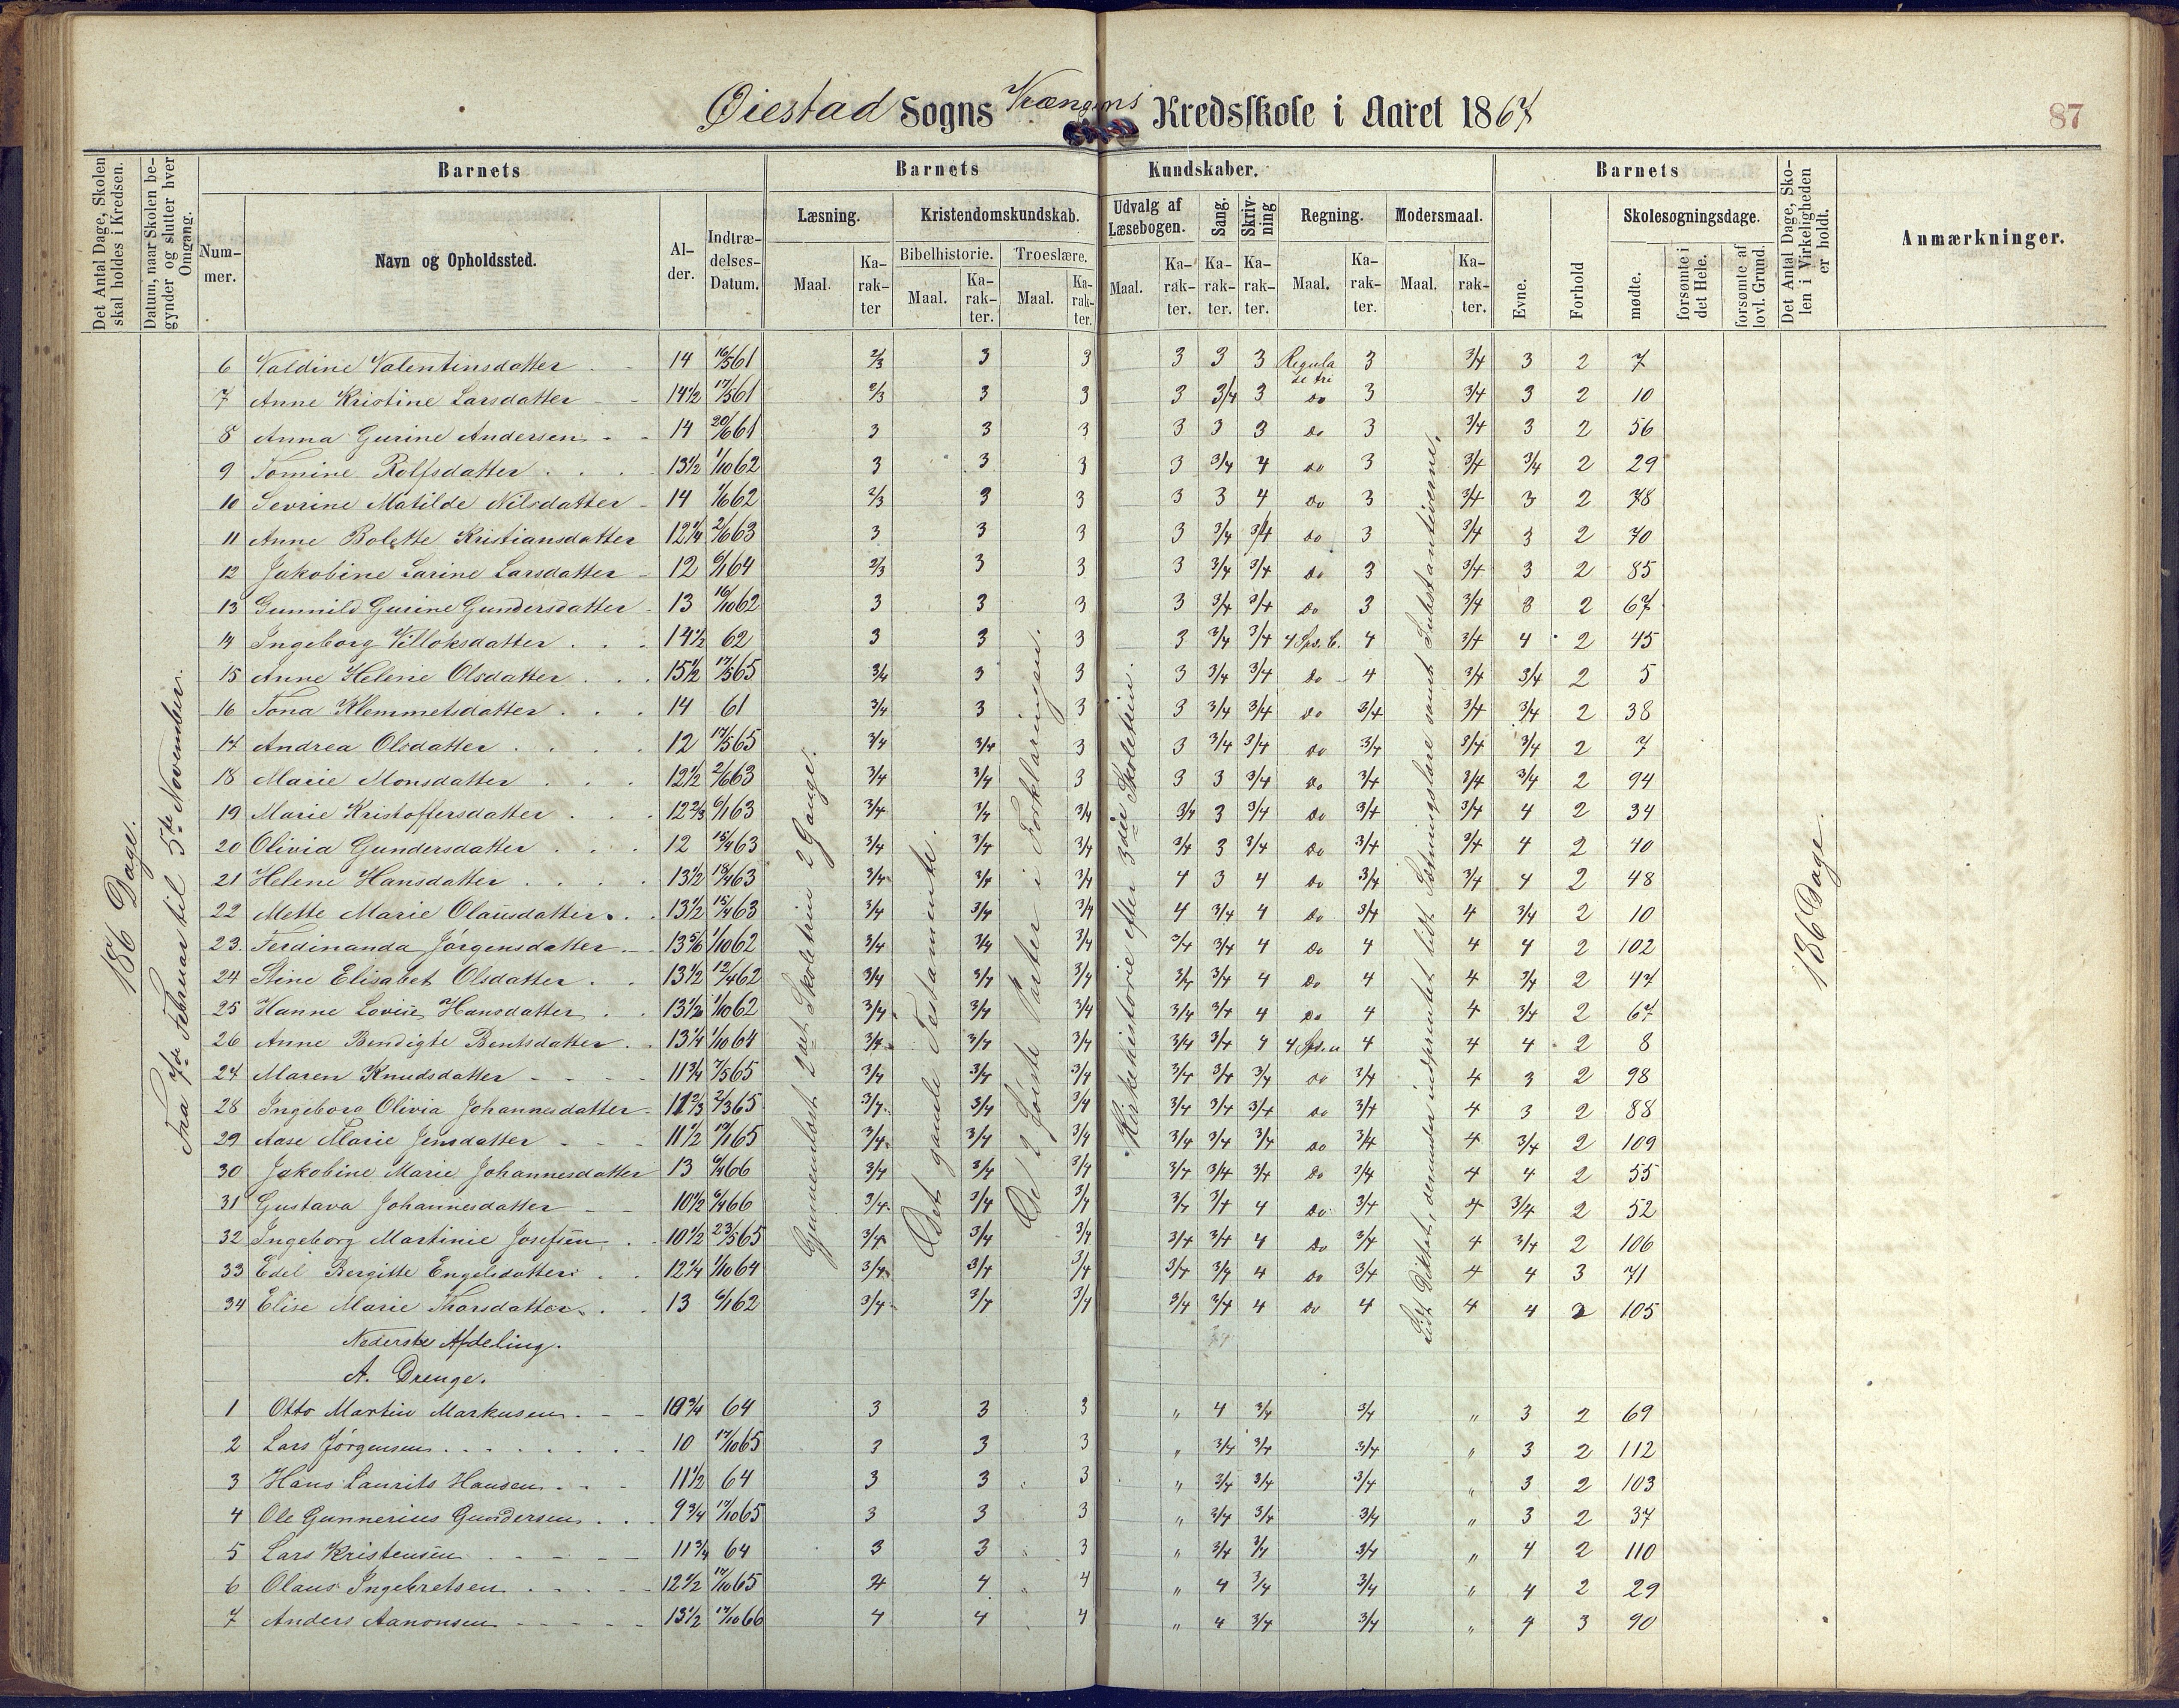 Øiestad Sogns Kredsskole i Aaret 1867
87
Det Antal Dage, Skolen skal holdes i Kredsen.
Datum, naar Skolen begynder og slutter hver Omgang.
Barnets
Barnets Kundskaber.
Barnets
Det Antal Dage, Skolen i Virkeligheden er holdt.
Anmærkninger.
Nummer.
Navn og Opholdssted.
Alder.
Indtrædelses-Datum.
Læsning.
Kristendomskundskab.
Udvalg af Læsebogen.
Sang.
Skrivning
Regning.
Modersmaal.
Evne.
Forhold
Skolesøgningsdage.
Bibelhistorie.
Troeslære.
mødte.
forsømte i det Hele.
forsømte af lovl. Grund.
Maal.
Karakter
Maal.
Karakter.
Maal.
Karakter.
Maal.
Karakter.
Karakter.
Karakter.
Maal.
Karakter.
Maal.
Karakter.
186 Dage.
Fra 7de Februar til 5te November.
Gjennemlæst 2det Skoletrin 2 Gange.
Det gamle Testamente.
De 2 første Parter i Forklaringen.
Kirkehistorie efter 3die Skoletrin.
Lidt Diktat, derunder indprentet lidt Sætningslære samt Substantiverne.
186 Dage.
6 Valdine Valentinsdatter 14 16/5 61 2/3 3 3 3 3 3 Regula de tri 3 3/4 3 2 7
7 Anne Kristine Larsdatter 14 1/2 17/5 61 2/3 3 3 3 3/4 3 do 3 3/4 3 2 10
8 Anna Gurine Andersen 14 20/6 61 3 3 3 3 3 3 do 3 3/4 3 2 56
9 Tomine Rolfsdatter 13 1/2 1/10 62 3 3 3 3 3/4 4 do 3 3/4 3/4 2 29
10 Sevrine Matilde Nilsdatter 14 1/6 62 2/3 3 3 3 3 4 do 3 3/4 3 2 78
11 Anne Bolette Kristiansdatter 12 1/4 2/6 63 3 3 3 3 3/4 3/4 do 3 3/4 3 2 70
12 Jakobine Larine Larsdatter 12 6/1 64 2/3 3 3 3 3/4 3/4 do 3 3/4 3 2 85
13 Gunnild Gurine Gundersdatter 13 16/10 62 3 3 3 3 3/4 3/4 do 3 3/4 3 2 67
14 Ingeborg Villoksdatter 14 1/2 62 3 3 3 3 3/4 3/4 4 Sps. b. 4 3/4 4 2 45
15 Anne Helene Olsdatter 15 1/2 17/5 65 3/4 3 3 3 3/4 3/4 do 4 3/4 3/4 2 5
16 Tona Klemmetsdatter 14 61 3/4 3 3 3 3/4 3/4 do 3/4 3/4 3/4 2 38
17 Andrea Olsdatter 12 17/5 65 3/4 3/4 3 3 3/4 3/4 do 3/4 3/4 3/4 2 7
18 Marie Monsdatter 12 1/2 2/6 63 3/4 3/4 3 3 3 3/4 do 3/4 3/4 3/4 2 94
19 Marie Kristoffersdatter 12 2/3 6/1 63 3/4 3/4 3/4 3/4 3 3/4 do 3/4 3/4 4 2 34
20 Olivia Gundersdatter 12 15/4 63 3/4 3/4 3/4 3/4 3 3/4 do 3/4 3/4 4 2 40
21 Helene Hansdatter 13 1/2 18/4 63 3/4 3/4 3/4 4 3 4 do 3/4 3/4 4 2 48
22 Mette Marie Olausdatter 13 1/2 15/4 63 3/4 3/4 3/4 4 3/4 4 do 3/4 4 3/4 2 10
23 Ferdinanda Jørgensdatter 13 5/6 1/10 62 3/4 3/4 3/4 3/4 3/4 4 do 4 4 4 2 102
24 Stine Elisabet Olsdatter 13 1/2 12/4 62 3/4 3/4 3/4 3/4 3/4 4 do 4 4 3/4 2 47
25 Hanne Lovise Hansdatter 13 1/2 1/10 62 3/4 3/4 3/4 3/4 3/4 4 do 4 4 3/4 2 67
26 Anne Bendigte Bentsdatter 13 1/4 1/10 64 3/4 3/4 3/4 3/4 3/4 4 4 Sps. u 4 4 4 2 8
27 Maren Knudsdatter 11 3/4 7/5 65 3/4 3/4 3/4 3/4 3/4 3/4 do 3/4 4 3 2 98
28 Ingeborg Olivia Johannesdatter 11 2/3 2/3 65 3/4 3/4 3/4 3/4 3/4 3/4 do 3/4 4 3 2 88
29 Aase Marie Jensdatter 11 1/2 17/1 65 3/4 3/4 3/4 3/4 3/4 3/4 do 3/4 4 3/4 2 109
30 Jakobine Marie Johannesdatter 13 6/4 66 3/4 3/4 3/4 3/4 3/4 3/4 do 3/4 4 4 2 55
31 Gustava Johannesdatter 10 1/2 6/4 66 3/4 3/4 3/4 3/4 3/4 4 do 3/4 4 3/4 2 52
32 Ingeborg Martinie Josefsen 10 1/2 23/5 65 3/4 3/4 3/4 3/4 3/4 4 do 3/4 4 3/4 2 106
33 Edel Bergitte Engelsdatter 12 1/4 1/10 64 3/4 3/4 3/4 3/4 3/4 4 do 3/4 4 4 3 71
34 Elise Marie Thorsdatter 13 6/1 62 3/4 3/4 3/4 3/4 3/4 4 do 4 4 4 3 105
Nederste Afdeling.
A. Drenge.
1 Otto Martin Markusen 10 3/4 64 3 3 3 " 4 3/4 3/4 " 3 2 69
2 Lars Jørgensen 10 17/10 65 3 3 3 " 3/4 3/4 3/4 " 3 2 112
3 Hans Laurits Hansen 11 1/2 64 3 3 3 " 3/4 3/4 3/4 " 3 2 103
4 Ole Gunnerius Gundersen 9 3/4 17/10 65 3 3 3 " 3/4 3/4 3/4 " 3 2 37
5 Lars Kristensen 11 3/4 64 3 3 3 " 3/4 3/4 3/4 " 4 2 110
6 Olaus Ingebretsen 12 1/2 17/10 65 4 4 4 " 4 3/4 3/4 " 4 2 29
7 Anders Aanonsen 13 1/2 17/10 66 4 4 4 " 4 3/4 3/4 " 4 3 90